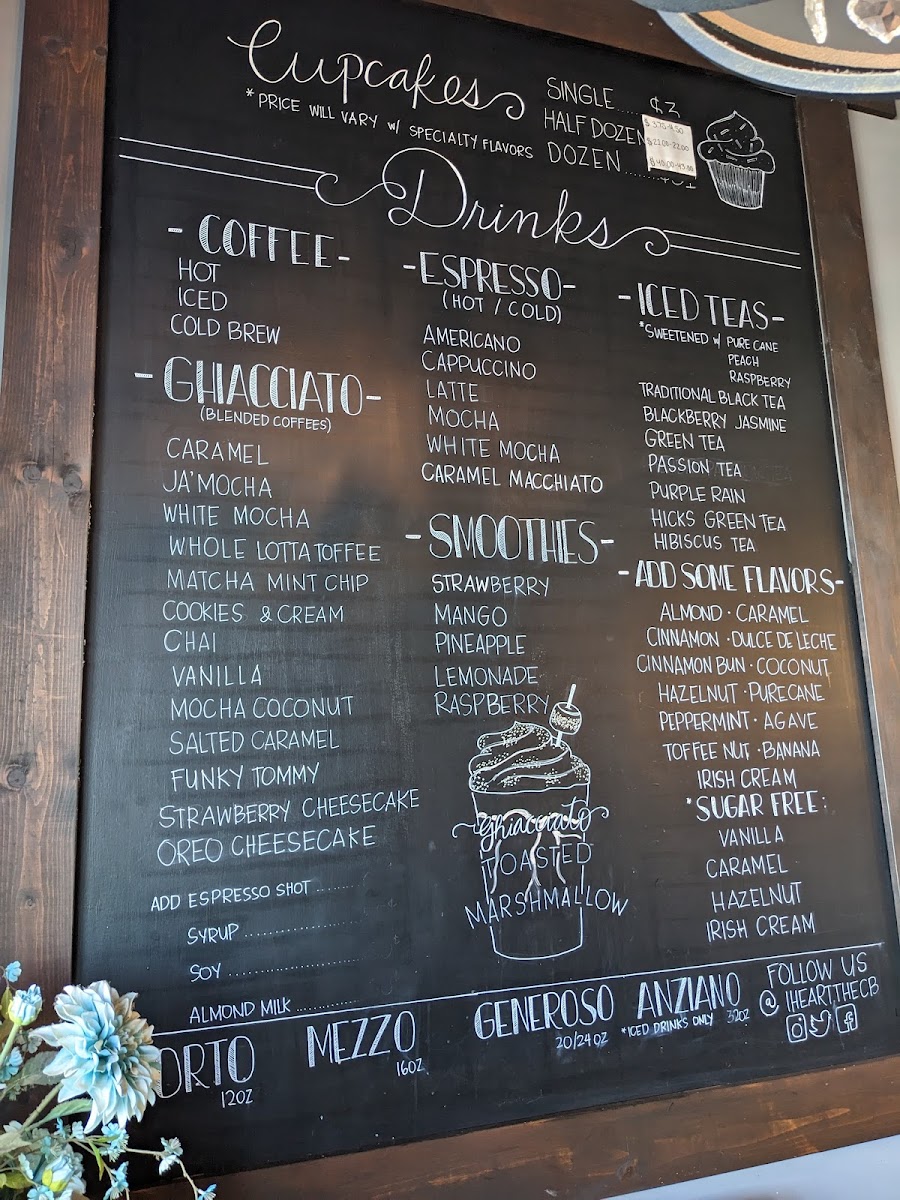 Cupcakes
*PRICE WILL VARY W/ SPECIALTY FLAVORS
SINGLE
HALF DOZEN
DOZEN
Drinks
- COFFEE -
HOT
ICED
COLD BREW
- GHIACCIATO -
(BLENDED COFFEES)
CARAMEL
JA'MOCHA
WHITE MOCHA
WHOLE LOTTA TOFFEE
MATCHA MINT CHIP
COOKIES & CREAM
CHAI
VANILLA
MOCHA COCONUT
SALTED CARAMEL
FUNKY TOMMY
STRAWBERRY CHEESECAKE
OREO CHEESECAKE
ADD ESPRESSO SHOT ........
SYRUP ..................
SOY ......................
ALMOND MILK ............
- ESPRESSO -
(HOT / COLD)
AMERICANO
CAPPUCCINO
LATTE
MOCHA
WHITE MOCHA
CARAMEL MACCHIATO
- SMOOTHIES -
STRAWBERRY
MANGO
PINEAPPLE
LEMONADE
RASPBERRY
ghiacciato
TOASTED
MARSHMALLOW
- ICED TEAS -
*SWEETENED W/ PURE CANE
PEACH
RASPBERRY
TRADITIONAL BLACK TEA
BLACKBERRY JASMINE
GREEN TEA
PASSION TEA
PURPLE RAIN
HICKS GREEN TEA
HIBISCUS TEA
- ADD SOME FLAVORS -
ALMOND · CARAMEL
CINNAMON · DULCE DE LECHE
CINNAMON BUN · COCONUT
HAZELNUT · PURECANE
PEPPERMINT · AGAVE
TOFFEE NUT · BANANA
IRISH CREAM
*SUGAR FREE:
VANILLA
CARAMEL
HAZELNUT
IRISH CREAM
ORTO
12OZ
MEZZO
16OZ
GENEROSO
20/24 OZ
ANZIANO
*ICED DRINKS ONLY 32OZ
FOLLOW US
@ IHEARTTHECB